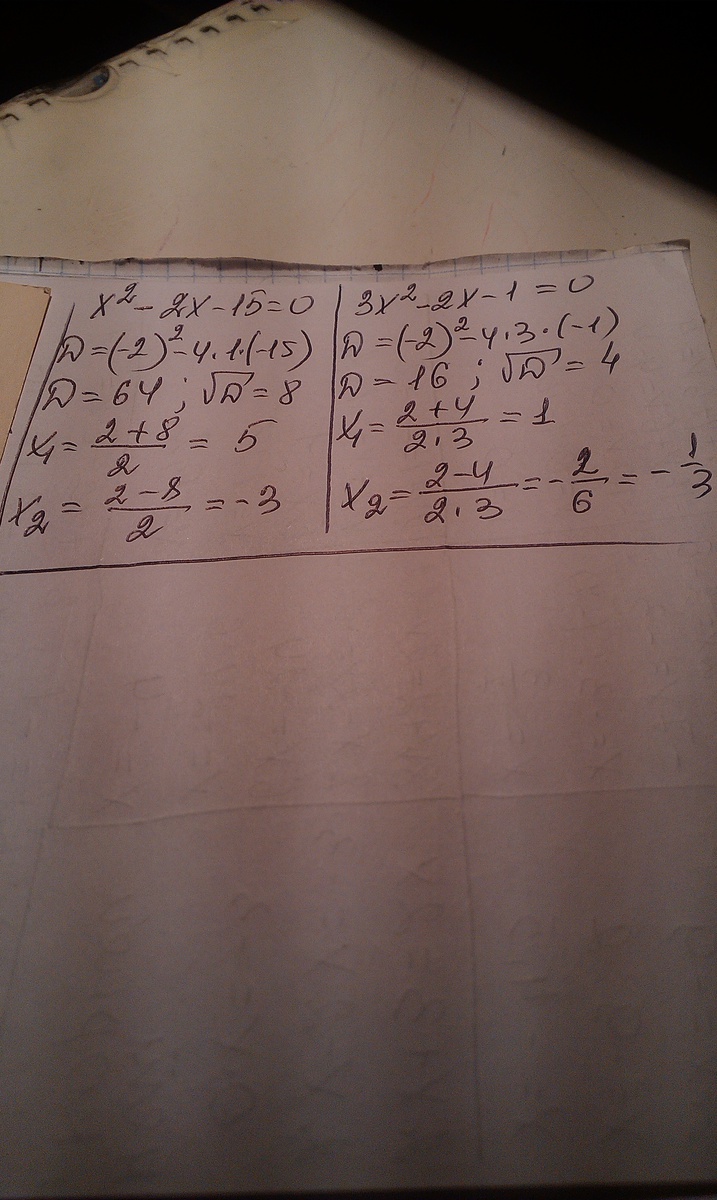 x² - 2x - 15 = 0
D = (-2)² - 4·1·(-15)
D = 64 ; √D = 8
x₁ = (2+8)/2 = 5
x₂ = (2-8)/2 = -3
3x² - 2x - 1 = 0
D = (-2)² - 4·3·(-1)
D = 16 ; √D = 4
x₁ = (2+4)/(2·3) = 1
x₂ = (2-4)/(2·3) = -2/6 = -1/3